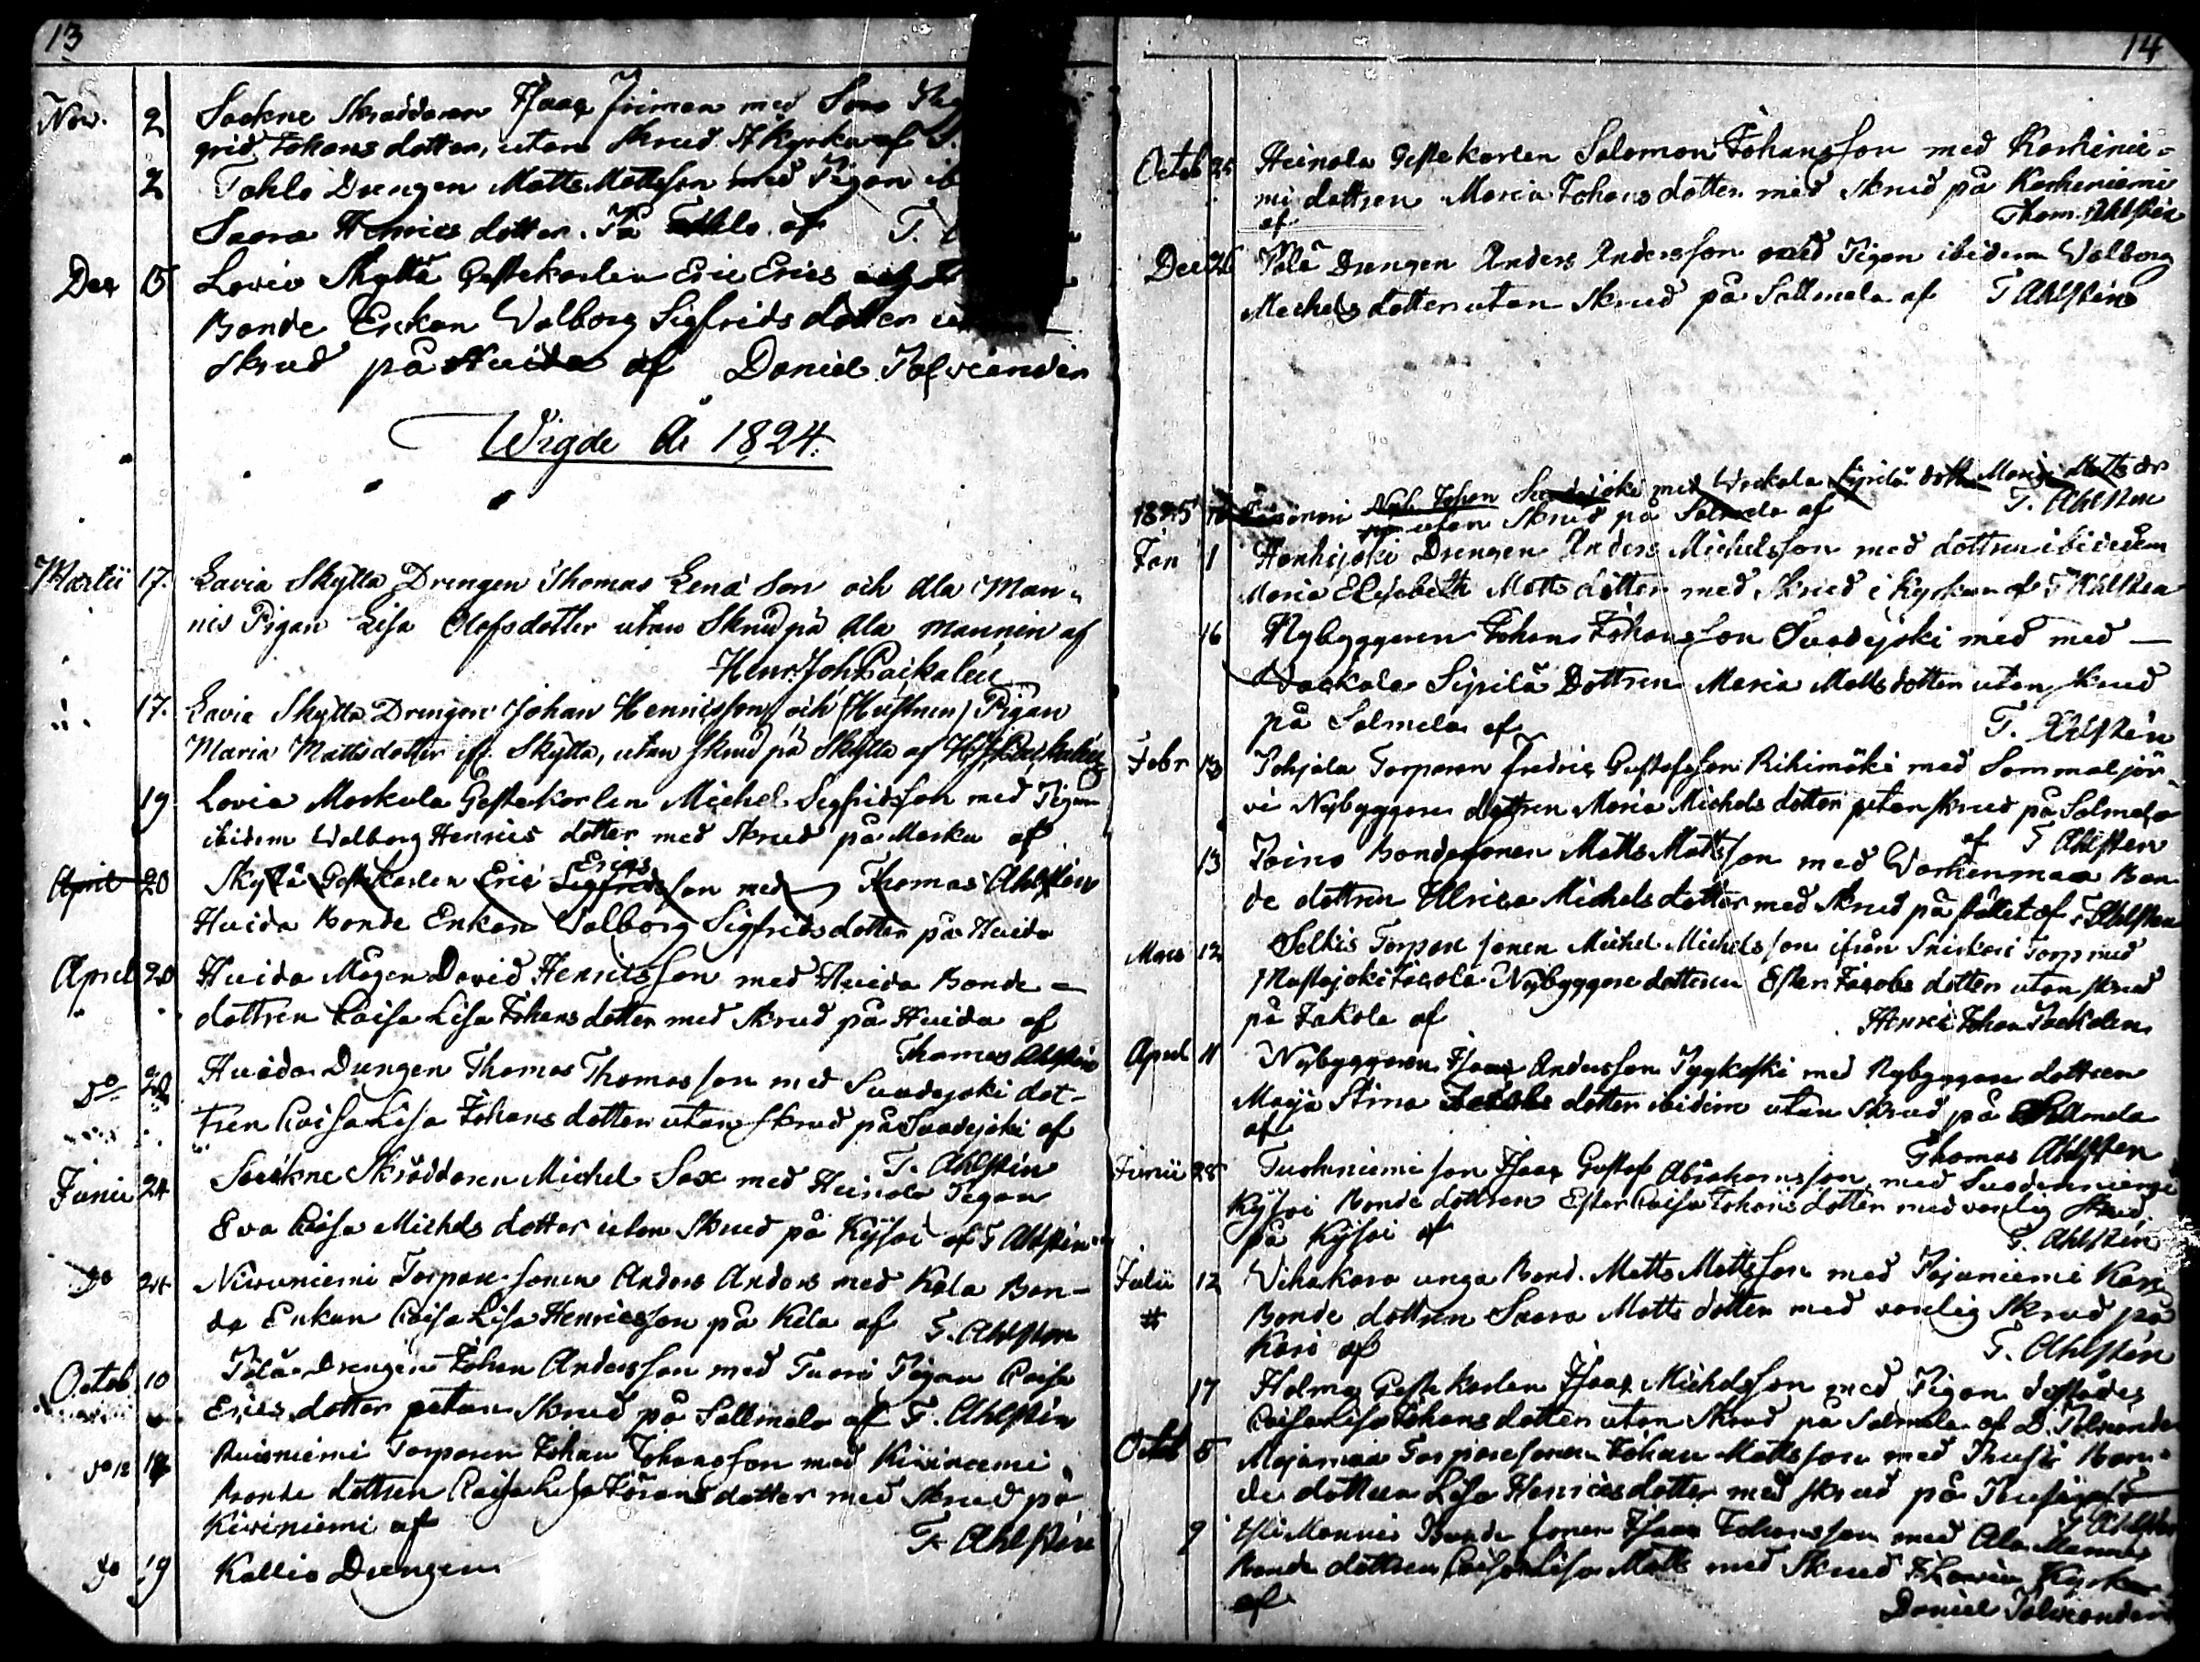 13
Nov. 2 Sockne Skräddaren Isaac Friman med Soro
grid Johans dotter, utan Skrud. I Kyrkan af
2 Tohlo Drengen Matts Mattsson med Pigan
Saara Henrics dotter. På Tohlo af T.
Dec 15 Lovia Skyttä Gestekarlen Eric Erics
Bonde Enkan Valborg Sigfrids dotter
Skrud på Huida af Daniel Polviander
Wigde År 1824.
Martii 17. Lavia Skytta Drengen Thomas Lena Son och Ala Man-
nis Pigan Lisa Olofsdotter utan Skrud på Ala Mannin af
Henr. Joh Packalén
17. Lavia Skytta Drengen Johan Henricsson och (Hustrun) Pigan
Maria Mattsdotter Skytta, utan skrud på Skytta af H. J. Packalén
19 Lovia Moskula Gestekarlen Michel Sigfridsson med Pigan
ibidem Walborg Henrics dotter med Skrud på Mosku af
April 20 Skyttä Gestekarlen Eric Sigfridsson Erics med Thomas Ahlstén
Huida Bonde Enkan Valborg Sigfridsdotter på Huida
April 20 Huida Mågen David Henricsson med Huida Bonde-
dottren Caisa Lisa Johans dotter med Skrud på Huida af
Thomas Ahlstén
Do 20 Huida Drengen Thomas Thomasson med Suodejoki dot-
tren Caisa Lisa Johans dotter utan skrud på Suodejoki af
T. Ahlstén
Junii 24 Sockne Skräddaren Michel Sax med Heinola Pigan
Eva Caisa Michels dotter utan Skrud på Kyssoi af T Ahlstén
Do 24 Niuruniemi Torpare sonen Anders Anders med Kola Bon-
de Enkan Caisa Lisa Henricsson på Kela af T. Ahlstén
Octob. 10 Pålä Drengen Johan Andersson med Tuori Pigan Caisa
Erics dotter utan Skrud på Sallmela af T. Ahlstén
do 12 Ruisniemi Torparen Johan Johansson med Kiviniemi
Bonde dottren Caisa Lisa Jörans dotter med Skrud på
Kiviniemi af
T. Ahlstén
do 19 Kallio Drengen
14
Octob 25 Heinola Gestekarlen Salomon Johansson med Karhinie-
mi dottren Maria Johans dotter med Skrud på Karheniemi
af Thom. Ahlstén
Dec 26 Pålä Drengen Anders Andersson med Pigan ibidem Valborg
Michels dotter utan Skrud på Sallmela af T Ahlstén
1825 Nyb. Johan Suodejoki med Wockola Sipilä dott. Maria Matts dr
utan Skrud på Salmela af T. Ahlstén
Jan 1 Honkijoki Drengen Anders Michelsson med dottren ibidem
Maria Elisabeth Matts dotter med Skrud i Kyrkan af T Ahlstén
16 Nybyggaren Johan Johansson Suodejoki med med -
Wockola Sipilä Dottren Maria Matts dotter utan skrud
på Salmela af
T. Ahlstén
Febr 13 Pohjala Torparen Fredric Gustafsson Rihimäki med Sammaljär-
vi Nybyggare dottren Maria Michels dotter utan skrud på Salmela
af T Ahlstén
13 Toino Bondesonen Matts Mattsson med Workenmaa Bon-
de dottren Ulrica Michels dotter med Skrud på stället af T Ahlstén
Mars 12 Selkis Torpare sonen Michel Michelsson ifrån Sniskari Torp med
Mustajoki Jacola Nybyggare dottren Ester Jacobs dotter utan skrud
på Jakola af
Henric Johan Packalen
April 11 Nybyggaren Isaac Andersson Pyykoski med Nybyggare dottren
Maija Stina Jacobs dotter ibidem utan Skrud på Sallmela
af
Thomas Ahlstén
Junii 28 Tuohiniemi son Isaac Gustaf Abrahamsson med Suodenniemi
Kyssoi Bonde dottren Ester Caisa Johans dotter med vanlig Skrud
på Kyssoi af
T. Ahlstén
Julii 12 Vihakara unga Bond. Matts Mattsson med Pajuniemi Kari
# Bonde dottren Saara Matts dotter med vanlig Skrud på
Kari af
T. Ahlstén
17 Holma Gestekarlen Isaac Michelsson med Pigan
Caisa Lisa Johans dotter utan Skrud på Salmela af D. Polviander
Octob 5 Majamaa Torparesonen Johan Mattsson med Pusti Bon-
de dottren Lisa Henricsdotter med skrud på
T Ahlstén
9 Yli Mannis Bonde sonen Isaac Johansson med Ala Mannis
Bonde dottren Caisa Lisa Matts med Skrud i Lavia Kyrka
af
Daniel Polviander